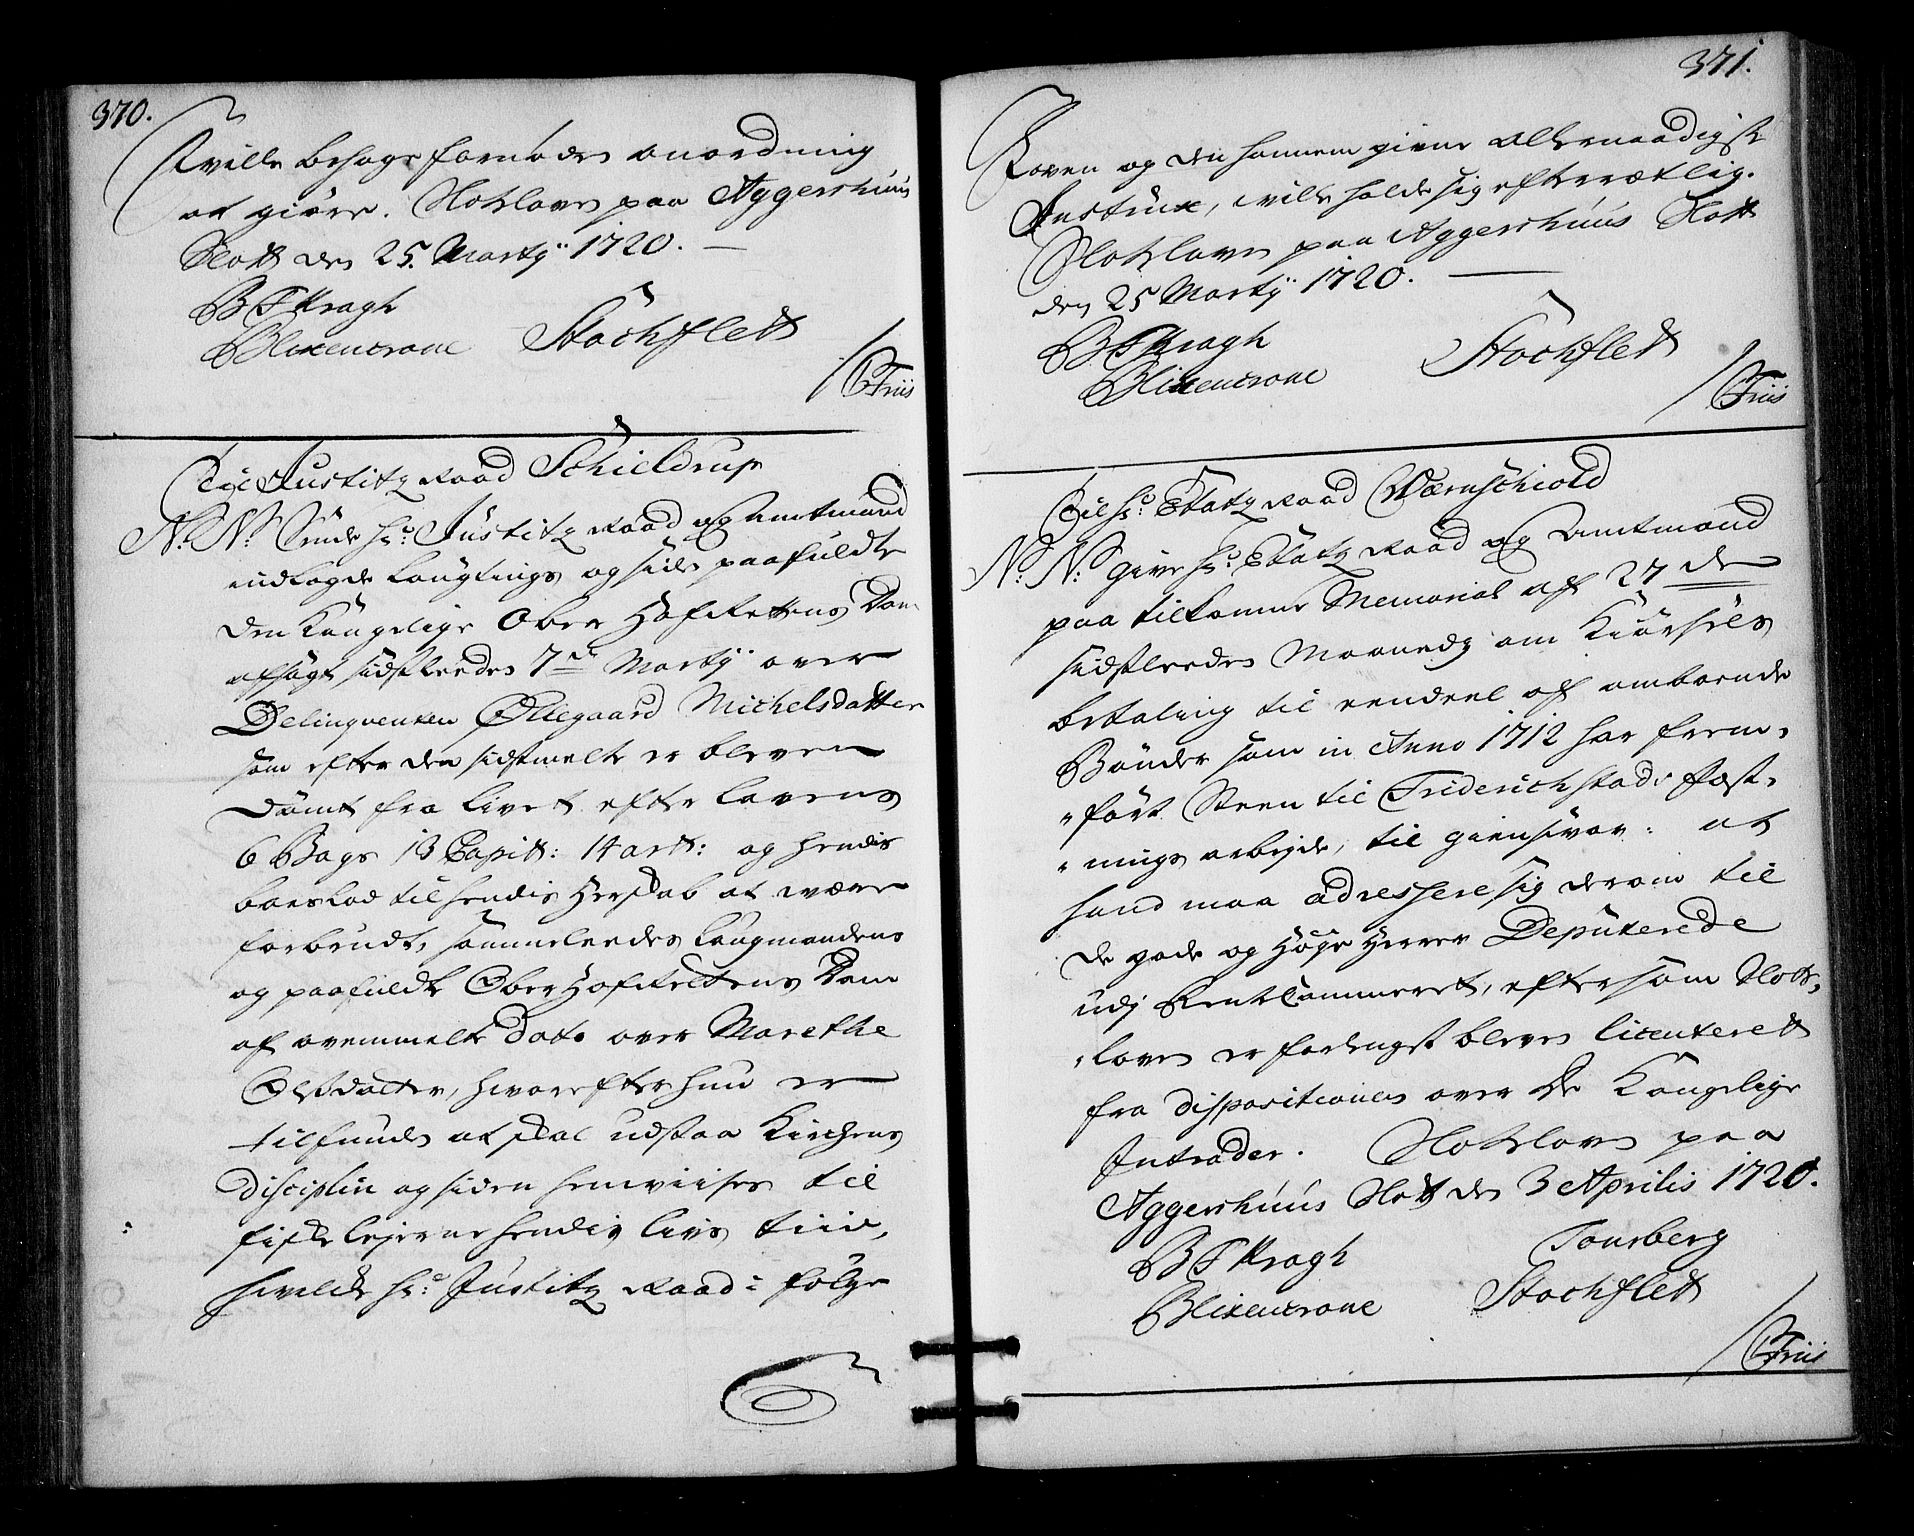 370.
ville behage fornøden anordning
at giøre. Slotzloven paa Aggershuus
Slott den 25. Marty 1720.
B T Kragh
Blixencrone Stochflett
/ C Friis
Til Justitz Raad Schieldrup
N: N: Sende Hr: Justitz Raad og Amtmand
indlagde Laugtings og side paafuldte
den Kongelige Ober Hof Rettens Dom
afsagt sidstleeden 7de Marty over
Delinqventen Ollegaard Michelsdatter
som efter den sidstmelte er bleven
dømt fra livet efter Lovens
6 Bogs 13 Capitt: 14 art: og hendis
boeslod til hendis Herskab at være
forbrudt, sammeleedes Laugmandens
og paafuldte Ober Hof Rettens Dom
af ovenmelte Dato over Marethe
Olsdatter, hvorefter hun er
tilfunden at skal udstaa Kirchens
disciplin og siden henviises til
fiskelejerne hendis livs tiid,
hvilcke Hr: Justitz Raad i følge
371.
Loven og den hannem givne allernaadigste
Instrux, ville holde sig efterrætlig.
Slotzloven paa Aggershuus Slott
den 25 Marty 1720.
B T Kragh
Blixencrone Stochflett
/ C Friis
Til Hr: Etatz Raad Wærnschiold
N: N: give Hr: Etatz Raad og Amtmand
paa tilkomne Memorial af 27de
sidstleeden Maanedz om Kiørsels
betaling til eendeel af omboende
Bønder som in Anno 1712 har frem-
ført Steen til Friderichstads Fæst-
nings arbejde, til giensvar: at
hand maa adressere sig derom til
de gode og Høye Herrer Deputerede
udj RenteCammeret, eftersom Slotz-
loven er forlengst bleven licenteret
fra dispositionen over de Kongelige
Intrader. Slotzloven paa
Aggershuus Slott den 3 Aprilis 1720.
B T Kragh Tonsberg
Blixencrone Stochflett
/ C Friis